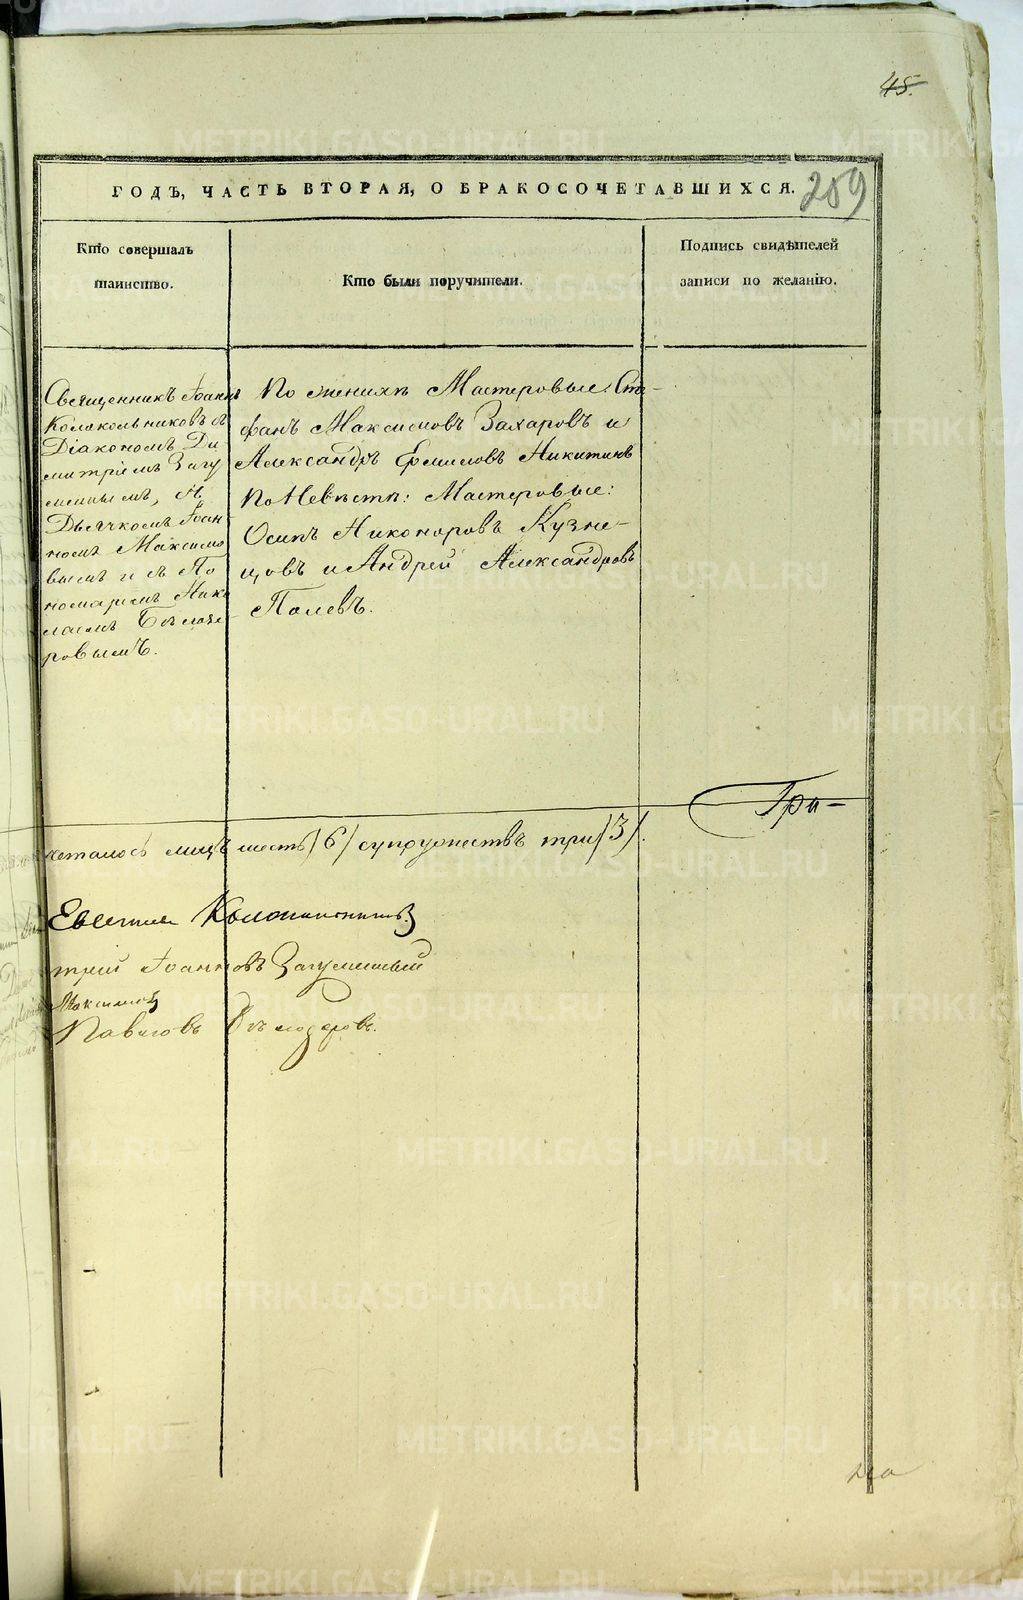 45.
ГОДЪ, ЧАСТЬ ВТОРАЯ, О БРАКОСОЧЕТАВШИХСЯ.
259
Кто совершалъ
таинство.
Кто были поручители.
Подпись свидѣтелей
записи по желанію.
Священникъ Іоаннъ
Колокольниковъ съ
Діакономъ Ди
митріемъ Загу
меннымъ, и
Дьячкомъ Іоан
номъ Максимо
вымъ и съ По
номаремъ Нико
лаемъ Бѣлозе-
ровымъ.
По женихѣ Мастеровые: Сте-
фанъ Максимовъ Захаровъ и
Александръ Ермиловъ Никитинъ
По Невѣстѣ: Мастеровые:
Осипъ Никоноровъ Кузне-
цовъ и Андрей Александровъ
Полевъ.
Гри-
четалось лицъ шесть /6/ супружествъ три /3/.
Евсѣиевъ Колокольниковъ
трій Іоанновъ Загуменный
Максимовъ
Павловъ Бѣлозеровъ.
METRIKI.GASO-URAL.RU